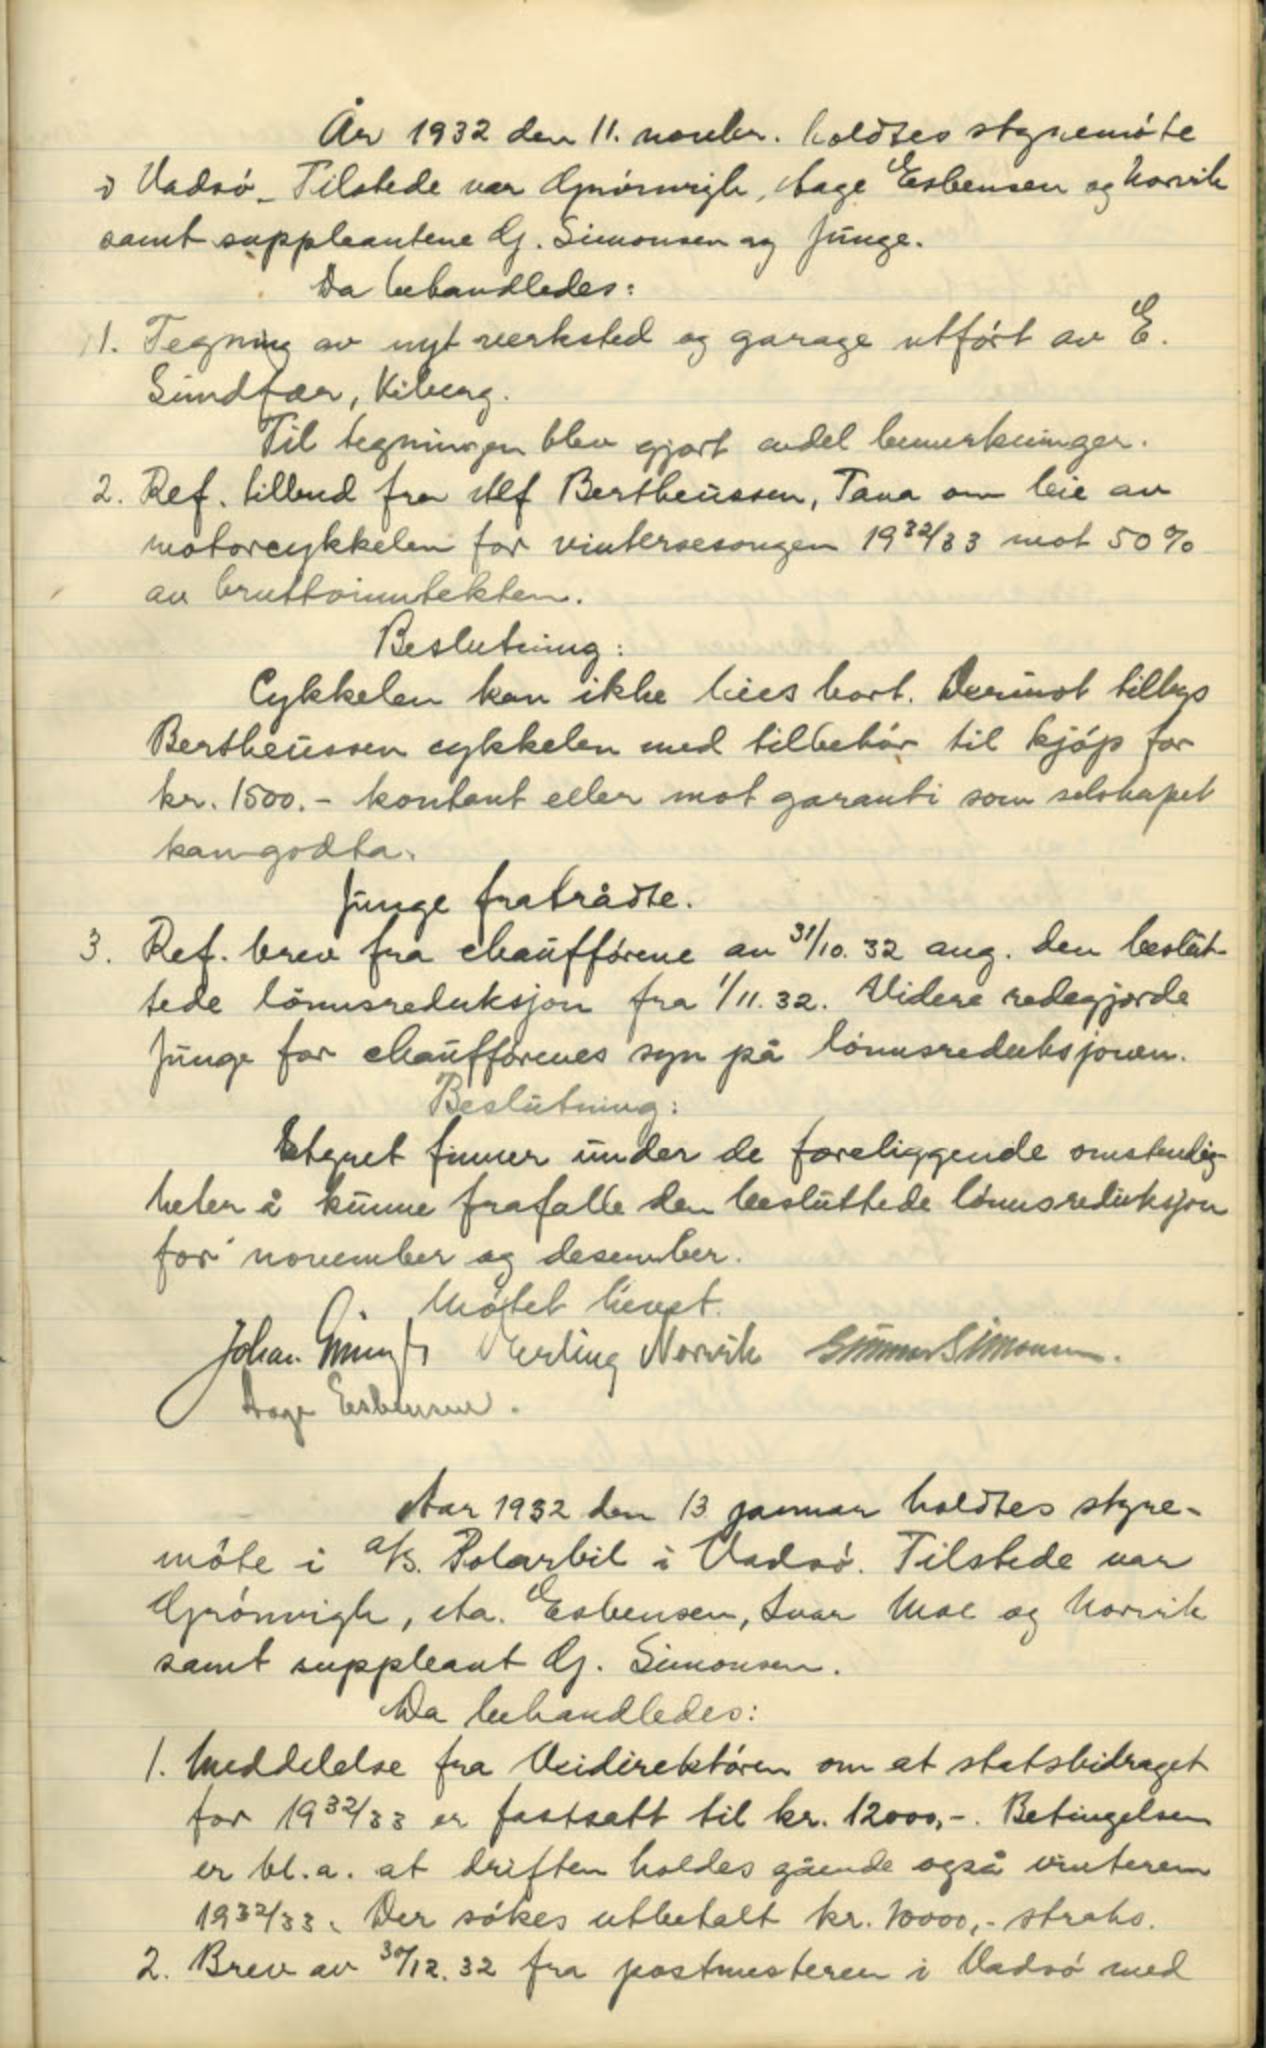 År 1932 den 11. novbr. holdtes styremöte
i Vadsö. Tilstede var Grönvigh, Aage Esbensen og Norvik
samt suppleantene G. Simonsen og Junge.
Da behandledes:
1. Tegning av nyt verksted og garage utfört av E.
Sundfær, Kiberg.
Til tegningen blev gjort endel bemerkninger.
2. Ref. tilbud fra Alf Bertheussen, Tana om leie av
motorcykkelen for vintersesongen 1932/33 mot 50%
av bruttoinntekten.
Beslutning:
Cykkelen kan ikke leies bort. Derimot tilbys
Bertheussen cykkelen med tilbehör til kjöp for
kr. 1500.- kontant eller mot garanti som selskapet
kan godta.
Junge fratrådte.
3. Ref. brev fra chaufförene av 31/10. 32 ang. den beslut-
tede lönnsreduksjon fra 1/11. 32. Videre redegjorde
Junge for chaufförenes syn på lönnsreduksjonen.
Beslutning:
Styret finner under de foreliggende omstendig-
heter å kunne frafalle den besluttede lönnsreduksjon
for november og desember.
Mötet hevet.
Johan Erling Norvik Gunnar Simonsen.
Aage Esbensen.
Aar 1932 den 13 januar holdtes styre-
möte i a/s. Polarbil i Vadsö. Tilstede var
Grönvigh, Aa. Esbensen, Ivar Moe og Norvik
samt suppleant G. Simonsen.
Da behandledes:
1. Meddelelse fra Veidirektören om at statsbidraget
for 1932/33 er fastsatt til kr. 12000,-. Betingelsen
er bl. a. at driften holdes gående også vinteren
1932/33. Der sökes utbetalt kr. 10000,- straks.
2. Brev av 30/12. 32 fra postmesteren i Vadsö med